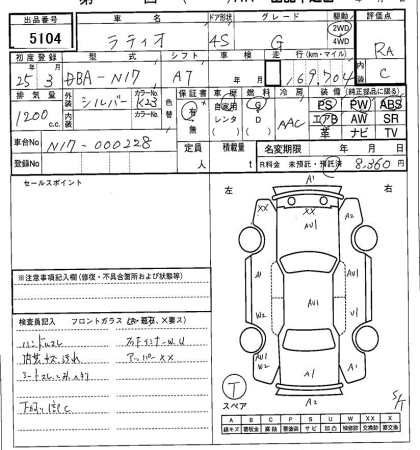 出品番号 車名 ドア形状 グレード 駆動 評価点
5104 ラティオ 4S G 2WD 4WD RA
初度登録 型式 シフト 車検 走行(km・マイル) 内装
25 3 DBA-N17 A7 169,704 C
排気量 外装 シルバー カラーNo. K23 色替 保証書 車歴 燃料 冷房 装備(純正部品に限る)
1200 c.c. 内装 カラーNo. 有 無 自家用 レンタ ( ) G D ( ) AAC PS PW ABS
エアB AW SR
革 ナビ TV
車台No N17-000228 定員 人 積載量 t 名変期限 年 月 日
登録No R料金 未預託・預託済 8,360円
セールスポイント
左 右
A1
XX XX A2
AU1
A1 AU1 U1
W2
AU1 W2 AU1 A1
A2
※注意事項記入欄(修復・不具合箇所および状態等)
検査員記入 フロントガラス
ハンドルスレ
内装キズ、汚れ アッパーXX
下廻り
T スペア S/T
A B C P S U W X XX
線キズ 要板金 腐蝕 要塗装 サビ 凹凸 補修跡 交換跡 要交換